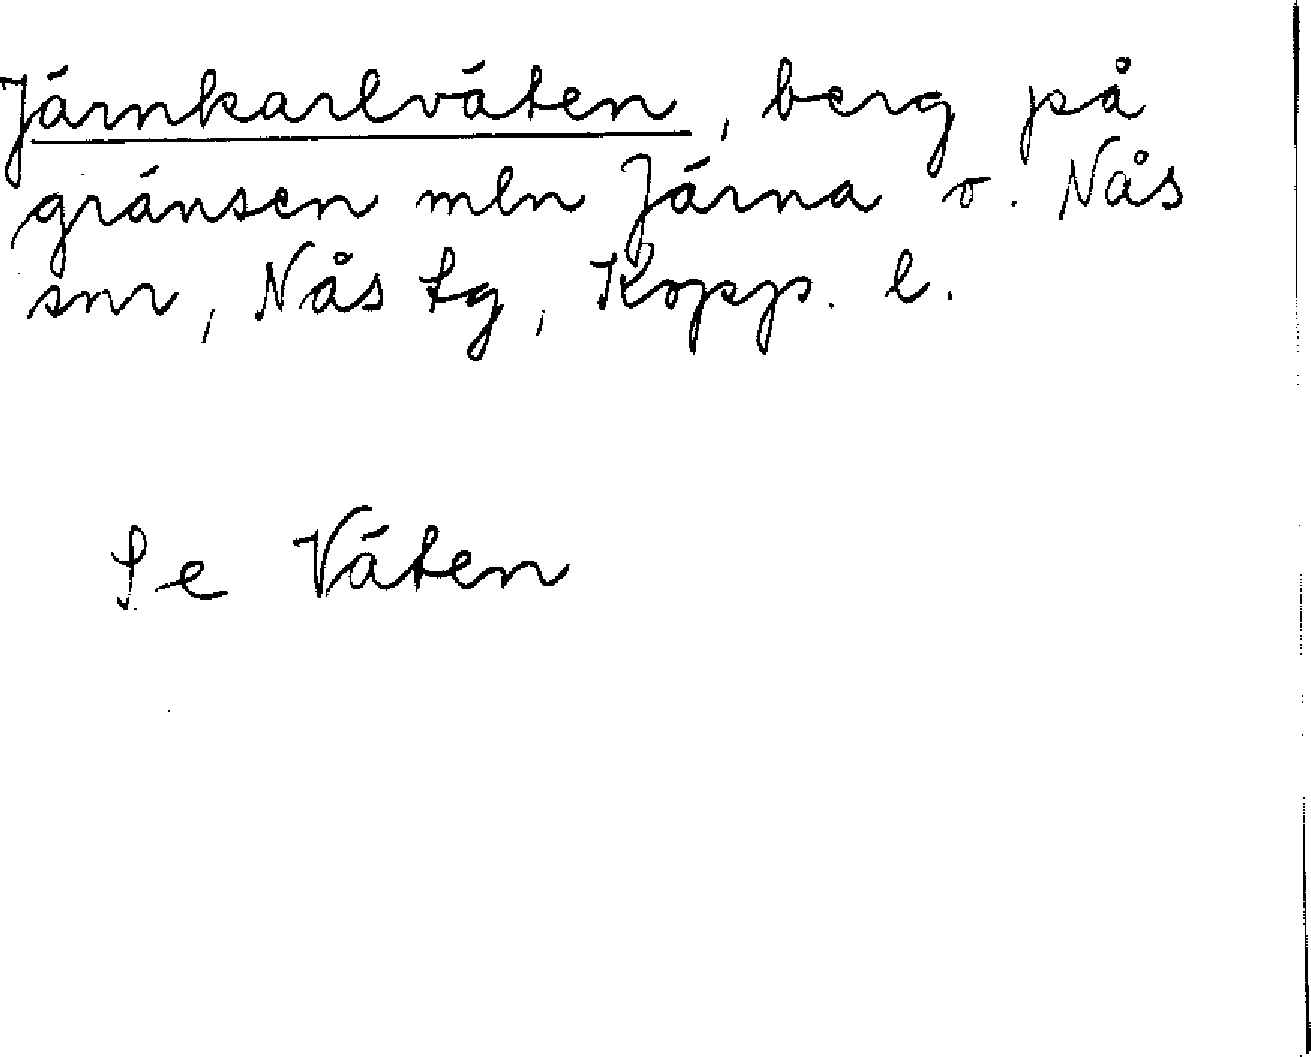 Järnkarlväten, berg på
gränsen mln Järna o. Nås
snr, Nås tg, Kopp. l.
Se Väten